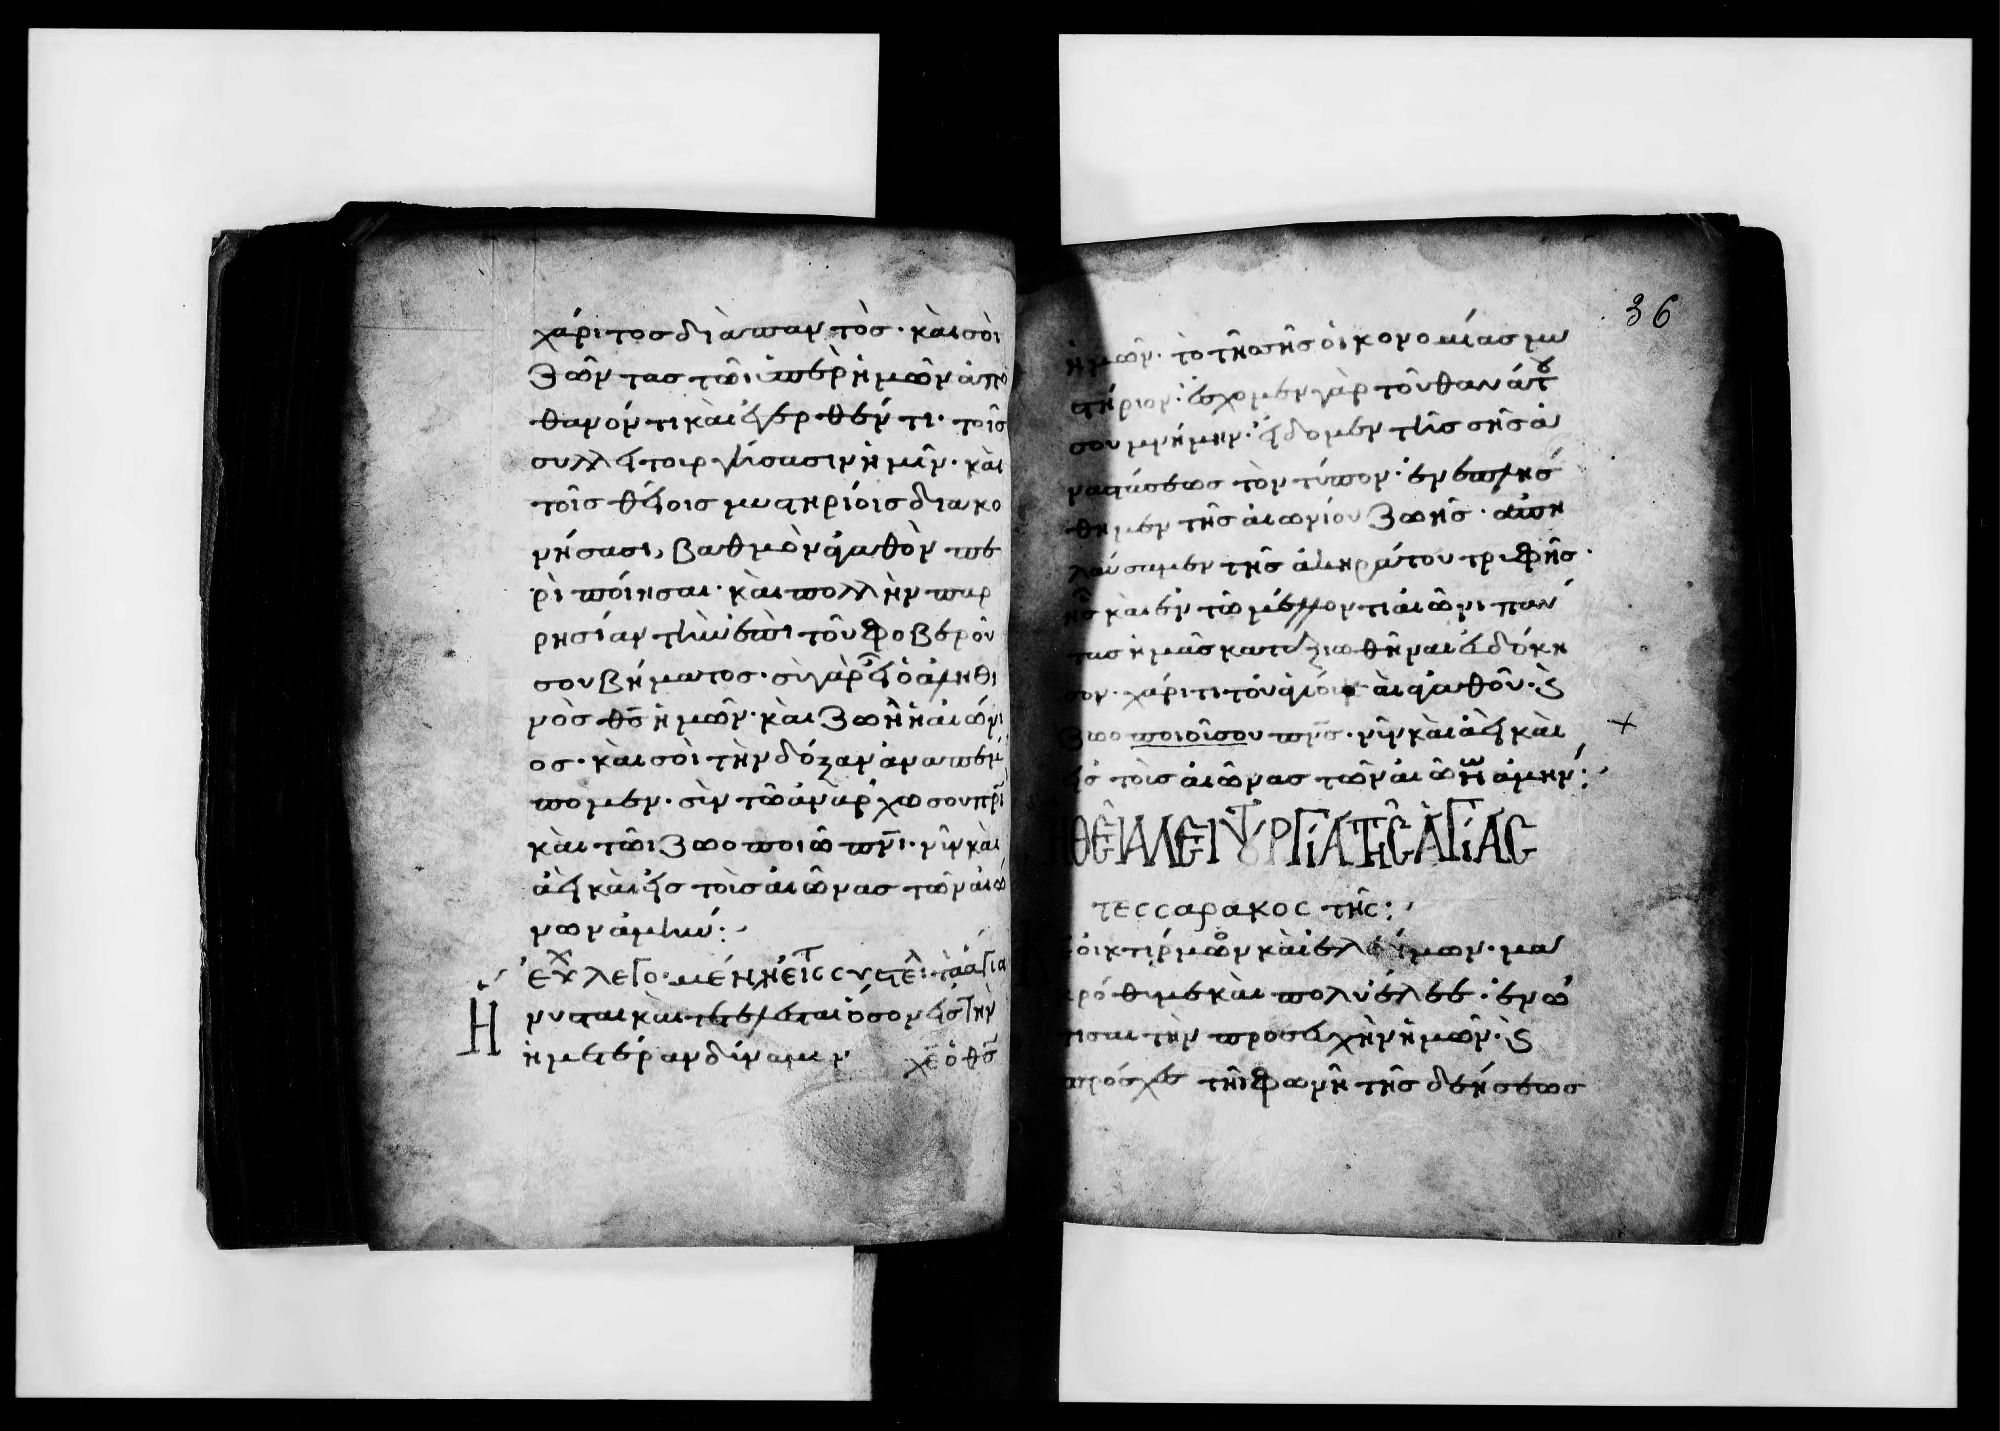 χάριτος διὰ παντὸς· καὶ σοὶ
ζῶντας τῶι ὑπὲρ ἡμῶν ἀπο
θανόντι καὶ ἐγερθέντι· τοῖς
συλλειτουργήσασιν ἡμῖν· καὶ
τοῖς θείοις μυστηρίοις διακο
νήσασι, βαθμὸν ἀγαθὸν πε
ριποίησαι· καὶ πολλὴν παρ
ρησίαν τὴν ἐπὶ τοῦ φοβεροῦ
σου βήματος· σὺ γὰρ εἶ ὁ ἀληθι
νὸς θς ἡμῶν· καὶ ζωὴ ἡ αιώνι
ος· καὶ σοὶ τὴν δόξαν ἀναπέμ
πομεν· σὺν τῶ ἀνάρχω σου πρι
καὶ τῶι ζωοποιῶ πνι· νῦν καὶ
ἀεὶ καὶ εἰς τοὺς αἰῶνας τῶν αἰώ
νων ἀμήν:
εὐχ λεγο·μέν ἡ εἰς τ συστελ τὰ ἅγια
Ἤνυσται καὶ τετέλεσται ὅσον εἰς τὴν
ἡμετέραν δύναμιν χε ὁ θς
36
ἡμῶν· τὸ τῆς σῆς οἰκονομίας μυ
στήριον· ἔσχομεν γὰρ τοῦ θανάτου
σου μνήμην· εἴδομεν τῆς σῆς ἀ
ναστάσεως τὸν τύπον· ἐνεπλήσ
θημεν τῆς αἰωνίου ζωῆς· ἀπη
λαύσαμεν τῆς ἀκηράτου τρυφῆς·
ἧς καὶ ἐν τῶ μέλλοντι αἰῶνι πάν
τας ἡμᾶς καταξιωθῆναι εὐδόκη
σον· χάριτι τοῦ ἁγίου καὶ ἀγαθοῦ· ϛ
ζωοποιοῦ σου πνς· νῦν καὶ ἀεὶ καὶ
εἰς τοὺς αἰῶνας τῶν αἰώνων ἀμήν:
Η ΘΕΙΑ ΛΕΙΤΟΥΡΓΙΑ ΤΗΣ ΑΓΙΑΣ
τεσσαρακοςτῆς:
οἰκτίρμων καὶ ἐλεήμων· μα
κρόθυμε καὶ πολυέλεε· ἐνώ
τισαι τὴν προσευχὴν ἡμῶν· ϛ
πρόσχες τῆι φωνῆ τῆς δεήσεως